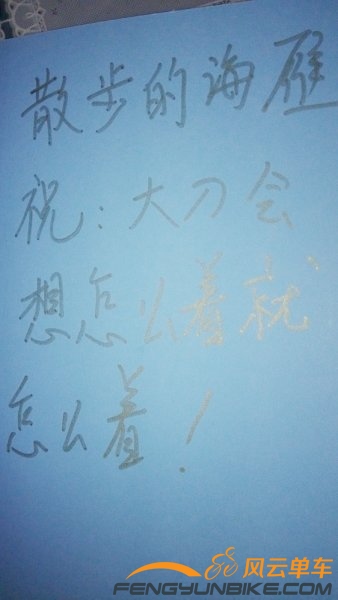 散步的海雁
祝:大刀会
想怎么着就
怎么着!
风云单车
FENGYUNBIKE.COM